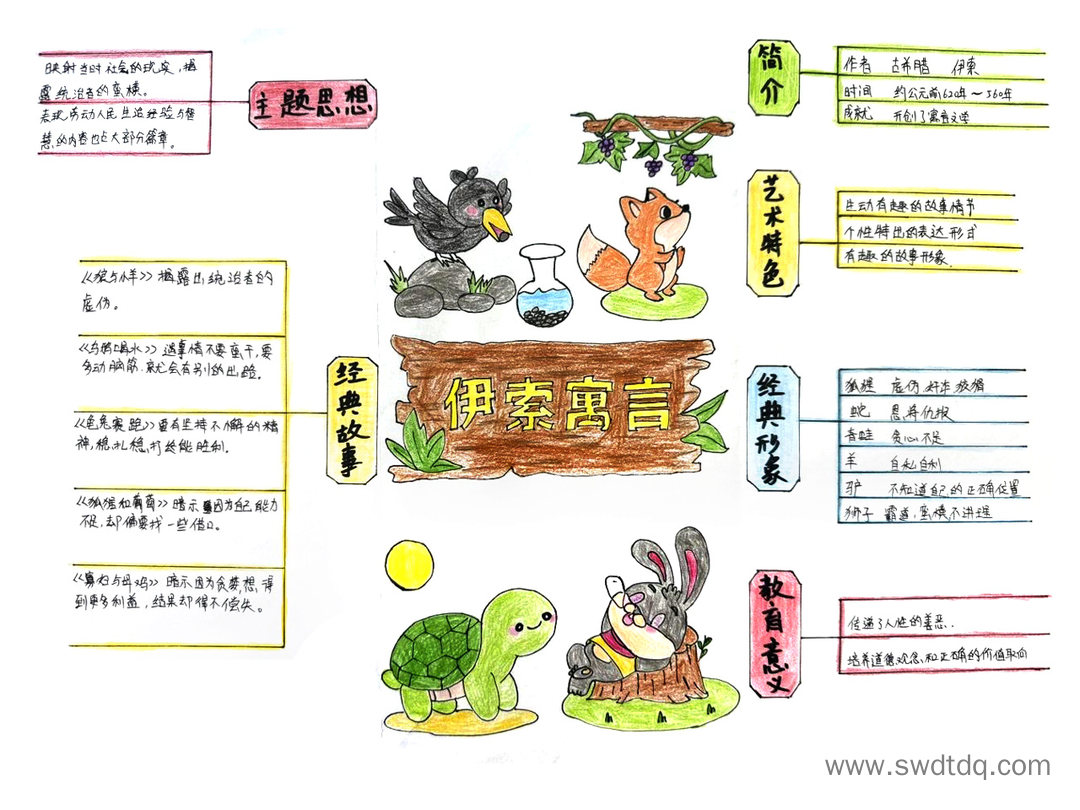 主题思想
映射当时社会的现实，揭
露统治者的蛮横。
表现劳动人民生活经验与智
慧的内容也占大部分篇章。
简介
作者 古希腊 伊索
时间 约公元前620年～560年
成就 开创了寓言文学
艺术特色
生动有趣的故事情节
个性特出的表达形式
有趣的故事形象.
经典故事
《狼与小羊》揭露出统治者的
虚伪。
《乌鸦喝水》遇事情不要蛮干，要
多动脑筋.就会有别的出路。
《龟兔赛跑》要有坚持不懈的精
神，稳扎稳打终能胜利.
《狐狸和葡萄》暗示因为自己能力
不足，却偏要找一些借口。
《寡妇与母鸡》暗示因为贪婪，想得
到更多利益，结果却得不偿失。
伊索寓言
经典形象
狐狸 虚伪 奸诈 狡猾
蛇 恩将仇报
青蛙 贪心不足
羊 自私自利
驴 不知道自己的正确位置
狮子 霸道，蛮横不讲理
教育意义
传递了人性的善恶.
培养道德观念和正确的价值取向
www.swdtdq.com